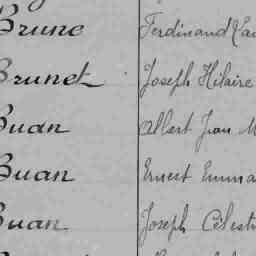 Brune Ferdinand
Brunet Joseph Hilaire
Buan Albert Jean
Buan Ernest Emma
Buan Joseph Célest